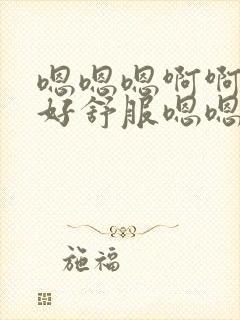 嗯嗯嗯啊啊
好舒服嗯嗯
施福